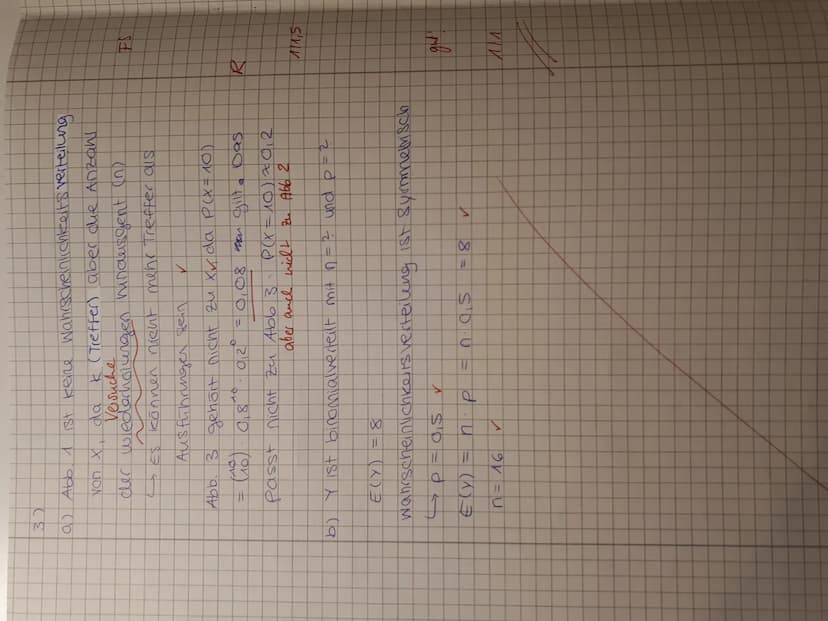 3)
a) Abb 1 ist keine Wahrscheinlichkeitsverteilung
von X, da k (Treffer) aber die Anzahl
Versuche
der Wiederholungen hinausgeht (n) FS
↳ Es können nicht mehr Treffer als
Ausführungen sein ✓
Abb. 3 gehört nicht zu X ✓, da P(X=10)
= (10 10) 0,8¹⁰ · 0,2⁰ = 0,08 gilt. Das R
passt nicht zu Abb 3: P(X=10) ≈ 0,2
aber auch nicht zu Abb 2 1/1,5
b) Y ist binomialverteilt mit n=? und p=?
E(Y) = 8
Wahrscheinlichkeitsverteilung ist symmetrisch
↳ p = 0,5 ✓ gut!
E(Y) = n · p = n · 0,5 = 8 ✓
n = 16 ✓ 1/1